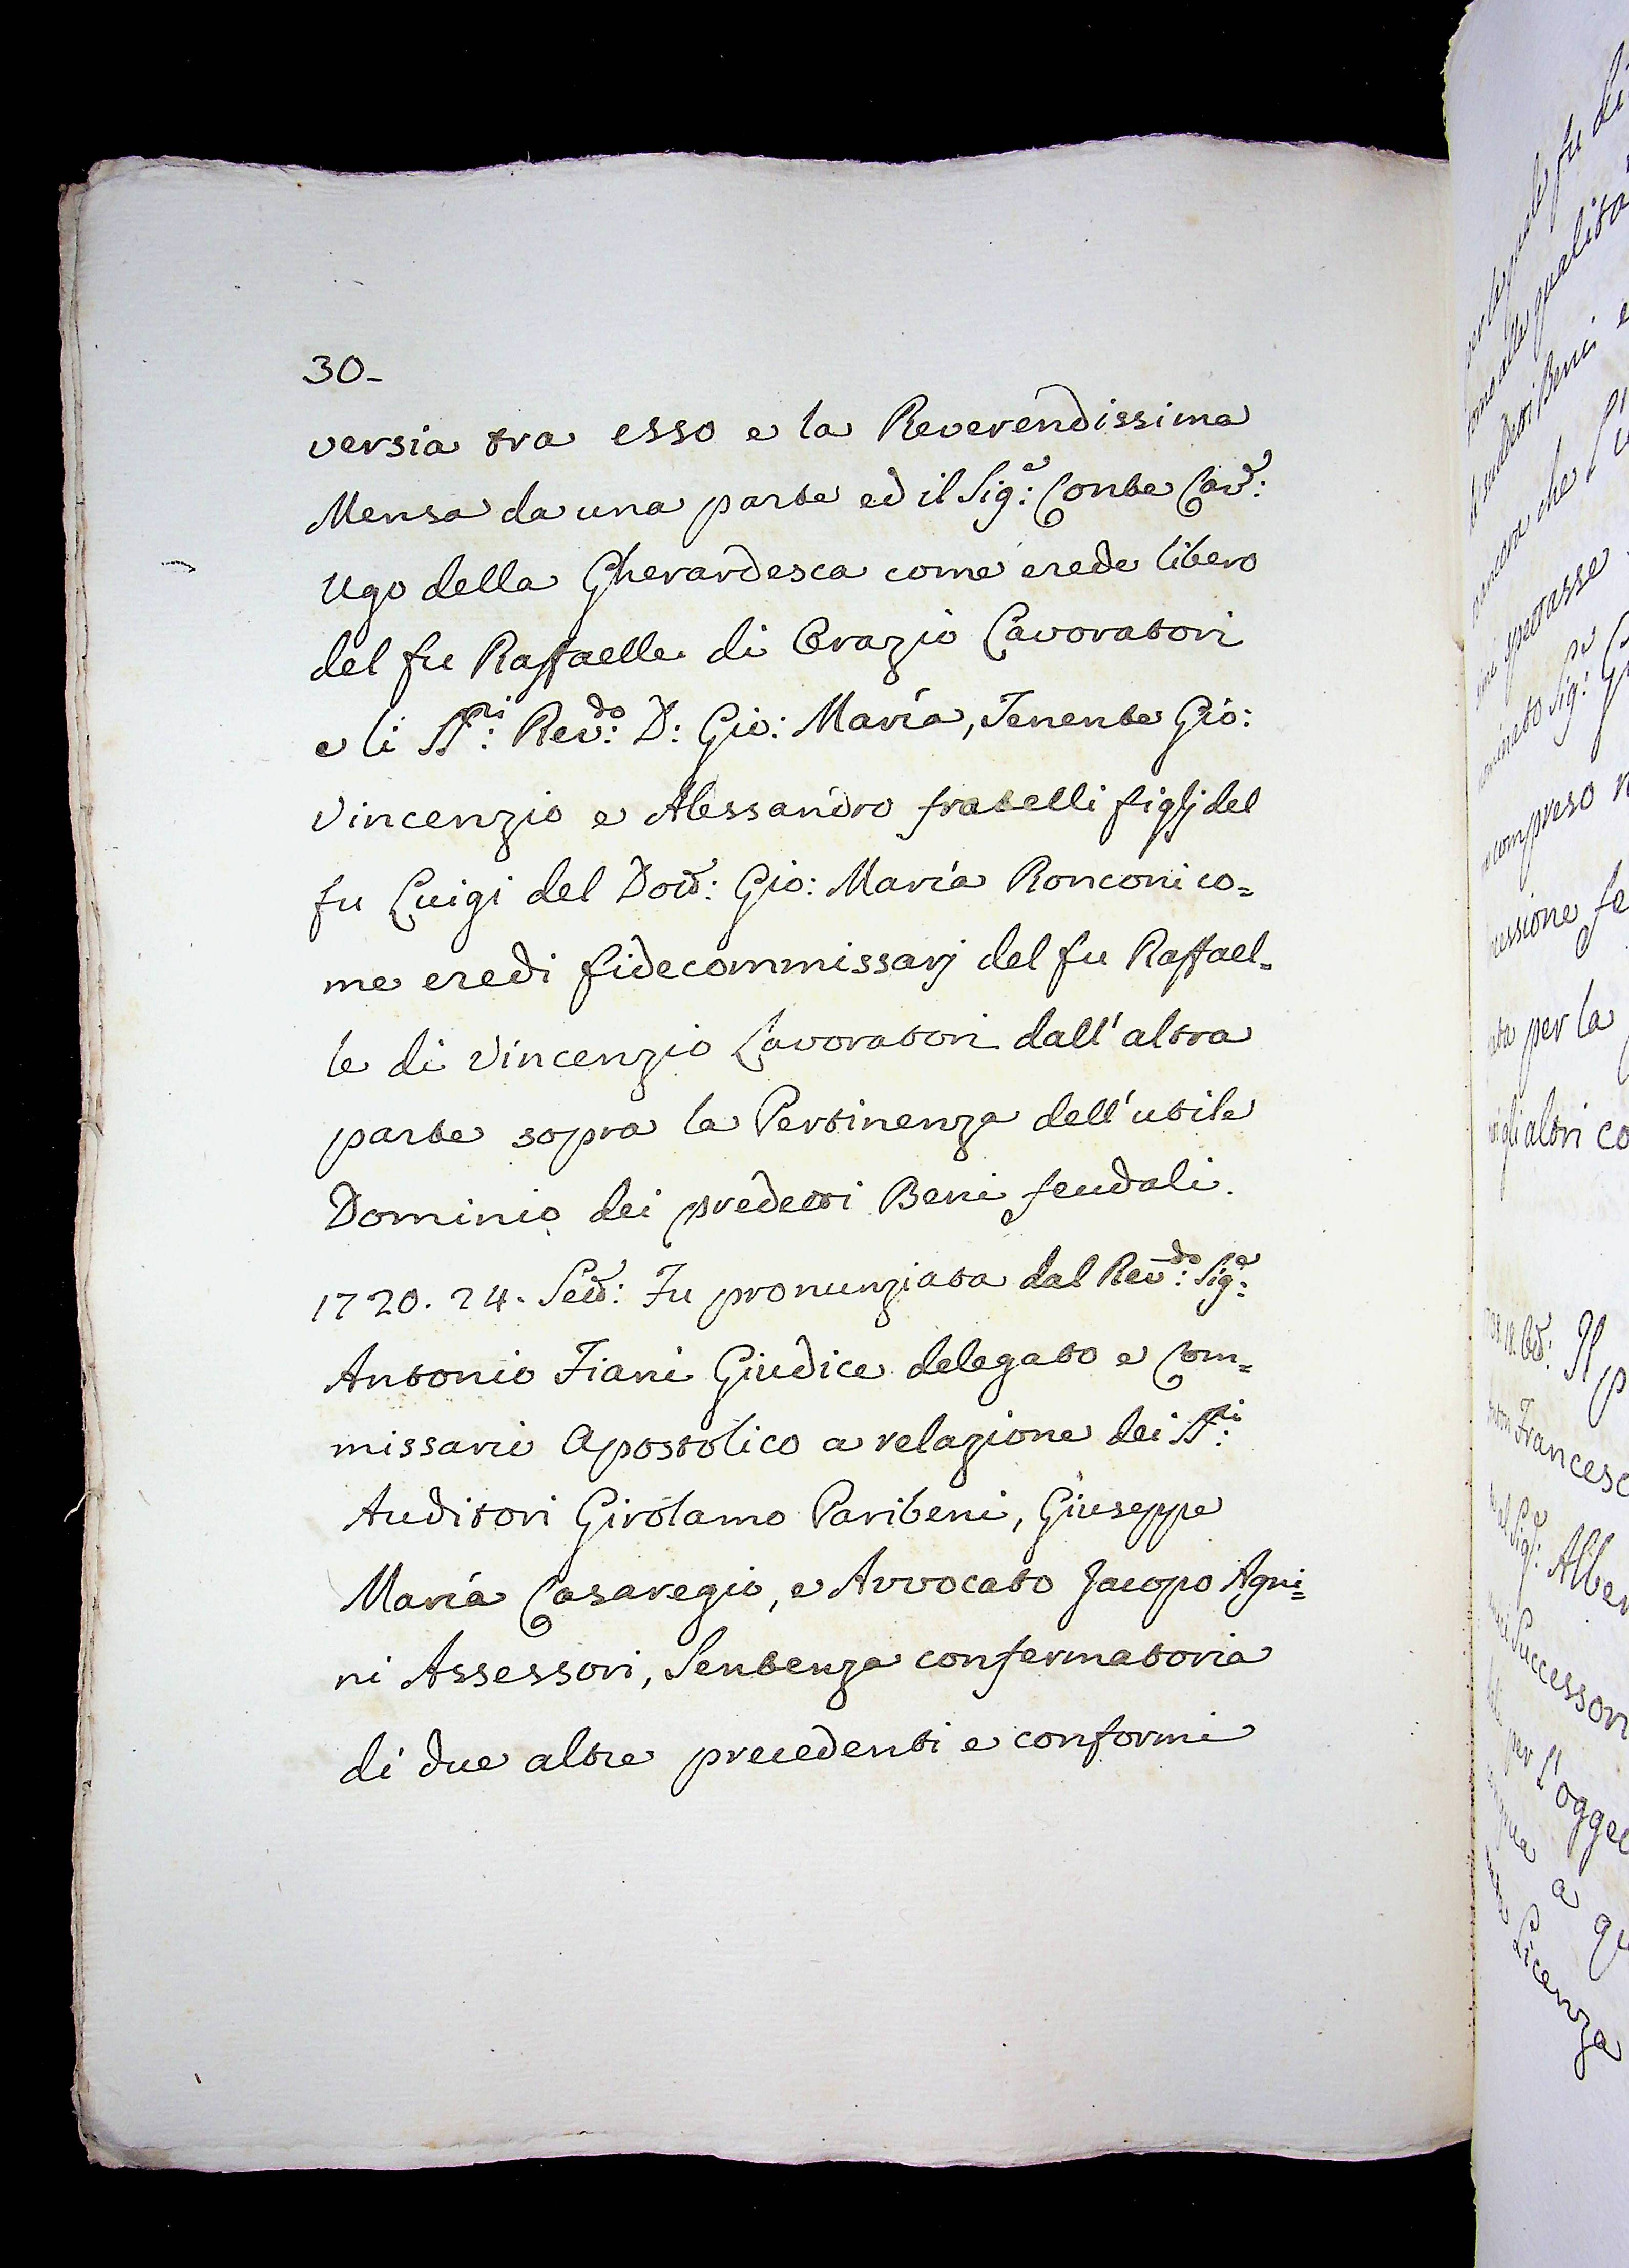 30-
versia tra esso e la Reverendissima
Mensa da una parte ed il Sig.e: Conte Cav.e:
Ugo della Gherardesca come erede libero
del fu Raffaelle di Orazio Lavoratori
e li SS.ri: Rev.do: D: Gio: Maria, Tenente Gio:
Vincenzio e Alessandro fratelli figlj del
fu Luigi del Dott: Gio: Maria Ronconi co=
me eredi fidecommissarj del fu Raffael=
le di Vincenzio Lavoratori dall'altra
parte sopra la Pertinenza dell'utile
Dominio dei predetti Beni feudali.
1720. 24. Sett: Fu pronunziata dal Rev.do: Sig.e:
Antonio Fiani Giudice delegato e Com=
missario Apostolico a relazione dei SS.ri:
Auditori Girolamo Paribeni, Giuseppe
Maria Casaregio, e Avvocato Jacopo Agni=
ni Assessori, Sentenza confermatoria
di due altre precedenti e conformi
per la quale fu di
qualità
suddetti Beni e
ancora che
spettasse
Sig.
compreso
per la
gli altri co
Il p
Francesc
Alber
Successori
per l'ogget
a qu
Licenza